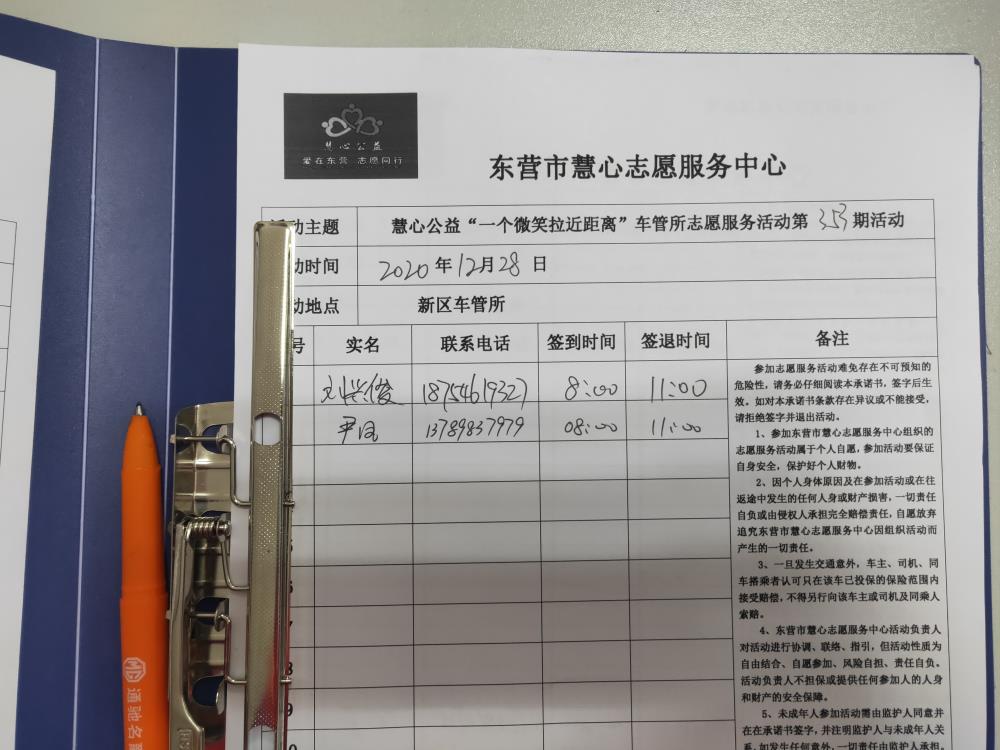 慧心公益
爱在东营 志愿同行
东营市慧心志愿服务中心
动主题 慧心公益“一个微笑拉近距离”车管所志愿服务活动第353期活动
动时间 2020年12月28日
动地点 新区车管所
号 实名 联系电话 签到时间 签退时间 备注
刘 俊 18754619327 8:00 11:00
尹凤 13789837979 08:00 11:00
9
参加志愿服务活动难免存在不可预知的
危险性，请务必仔细阅读本承诺书，签字后生
效。如对本承诺书条款存在异议或不能接受，
请拒绝签字并退出活动。
1、参加东营市慧心志愿服务中心组织的
志愿服务活动属于个人自愿，参加活动要保证
自身安全，保护好个人财物。
2、因个人身体原因及在参加活动或在往
返途中发生的任何人身或财产损害，一切责任
自负或由侵权人承担完全赔偿责任，自愿放弃
追究东营市慧心志愿服务中心因组织活动而
产生的一切责任。
3、一旦发生交通意外，车主、司机、同
车搭乘者认可只在该车已投保的保险范围内
接受赔偿，不得另行向该车主或司机及同乘人
索赔。
4、东营市慧心志愿服务中心活动负责人
对活动进行协调、联络、指引，但活动性质为
自由结合、自愿参加、风险自担、责任自负。
活动负责人不担保或提供任何参加人的人身
和财产的安全保障。
5、未成年人参加活动需由监护人同意并
在在承诺书签字，并注明监护人与未成年人关
系，如发生任何意外，一切责任由监护人承担。
MG 通驰名